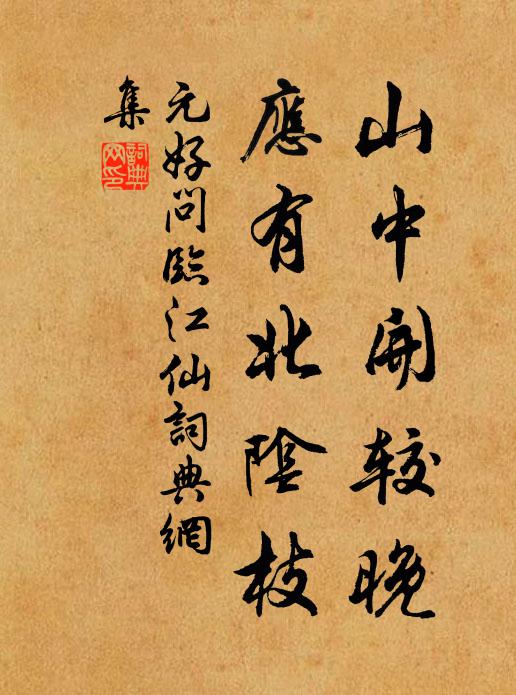 山中開較晚
應有北陰枝
元好问臨江仙詞典網
集
詞典網印